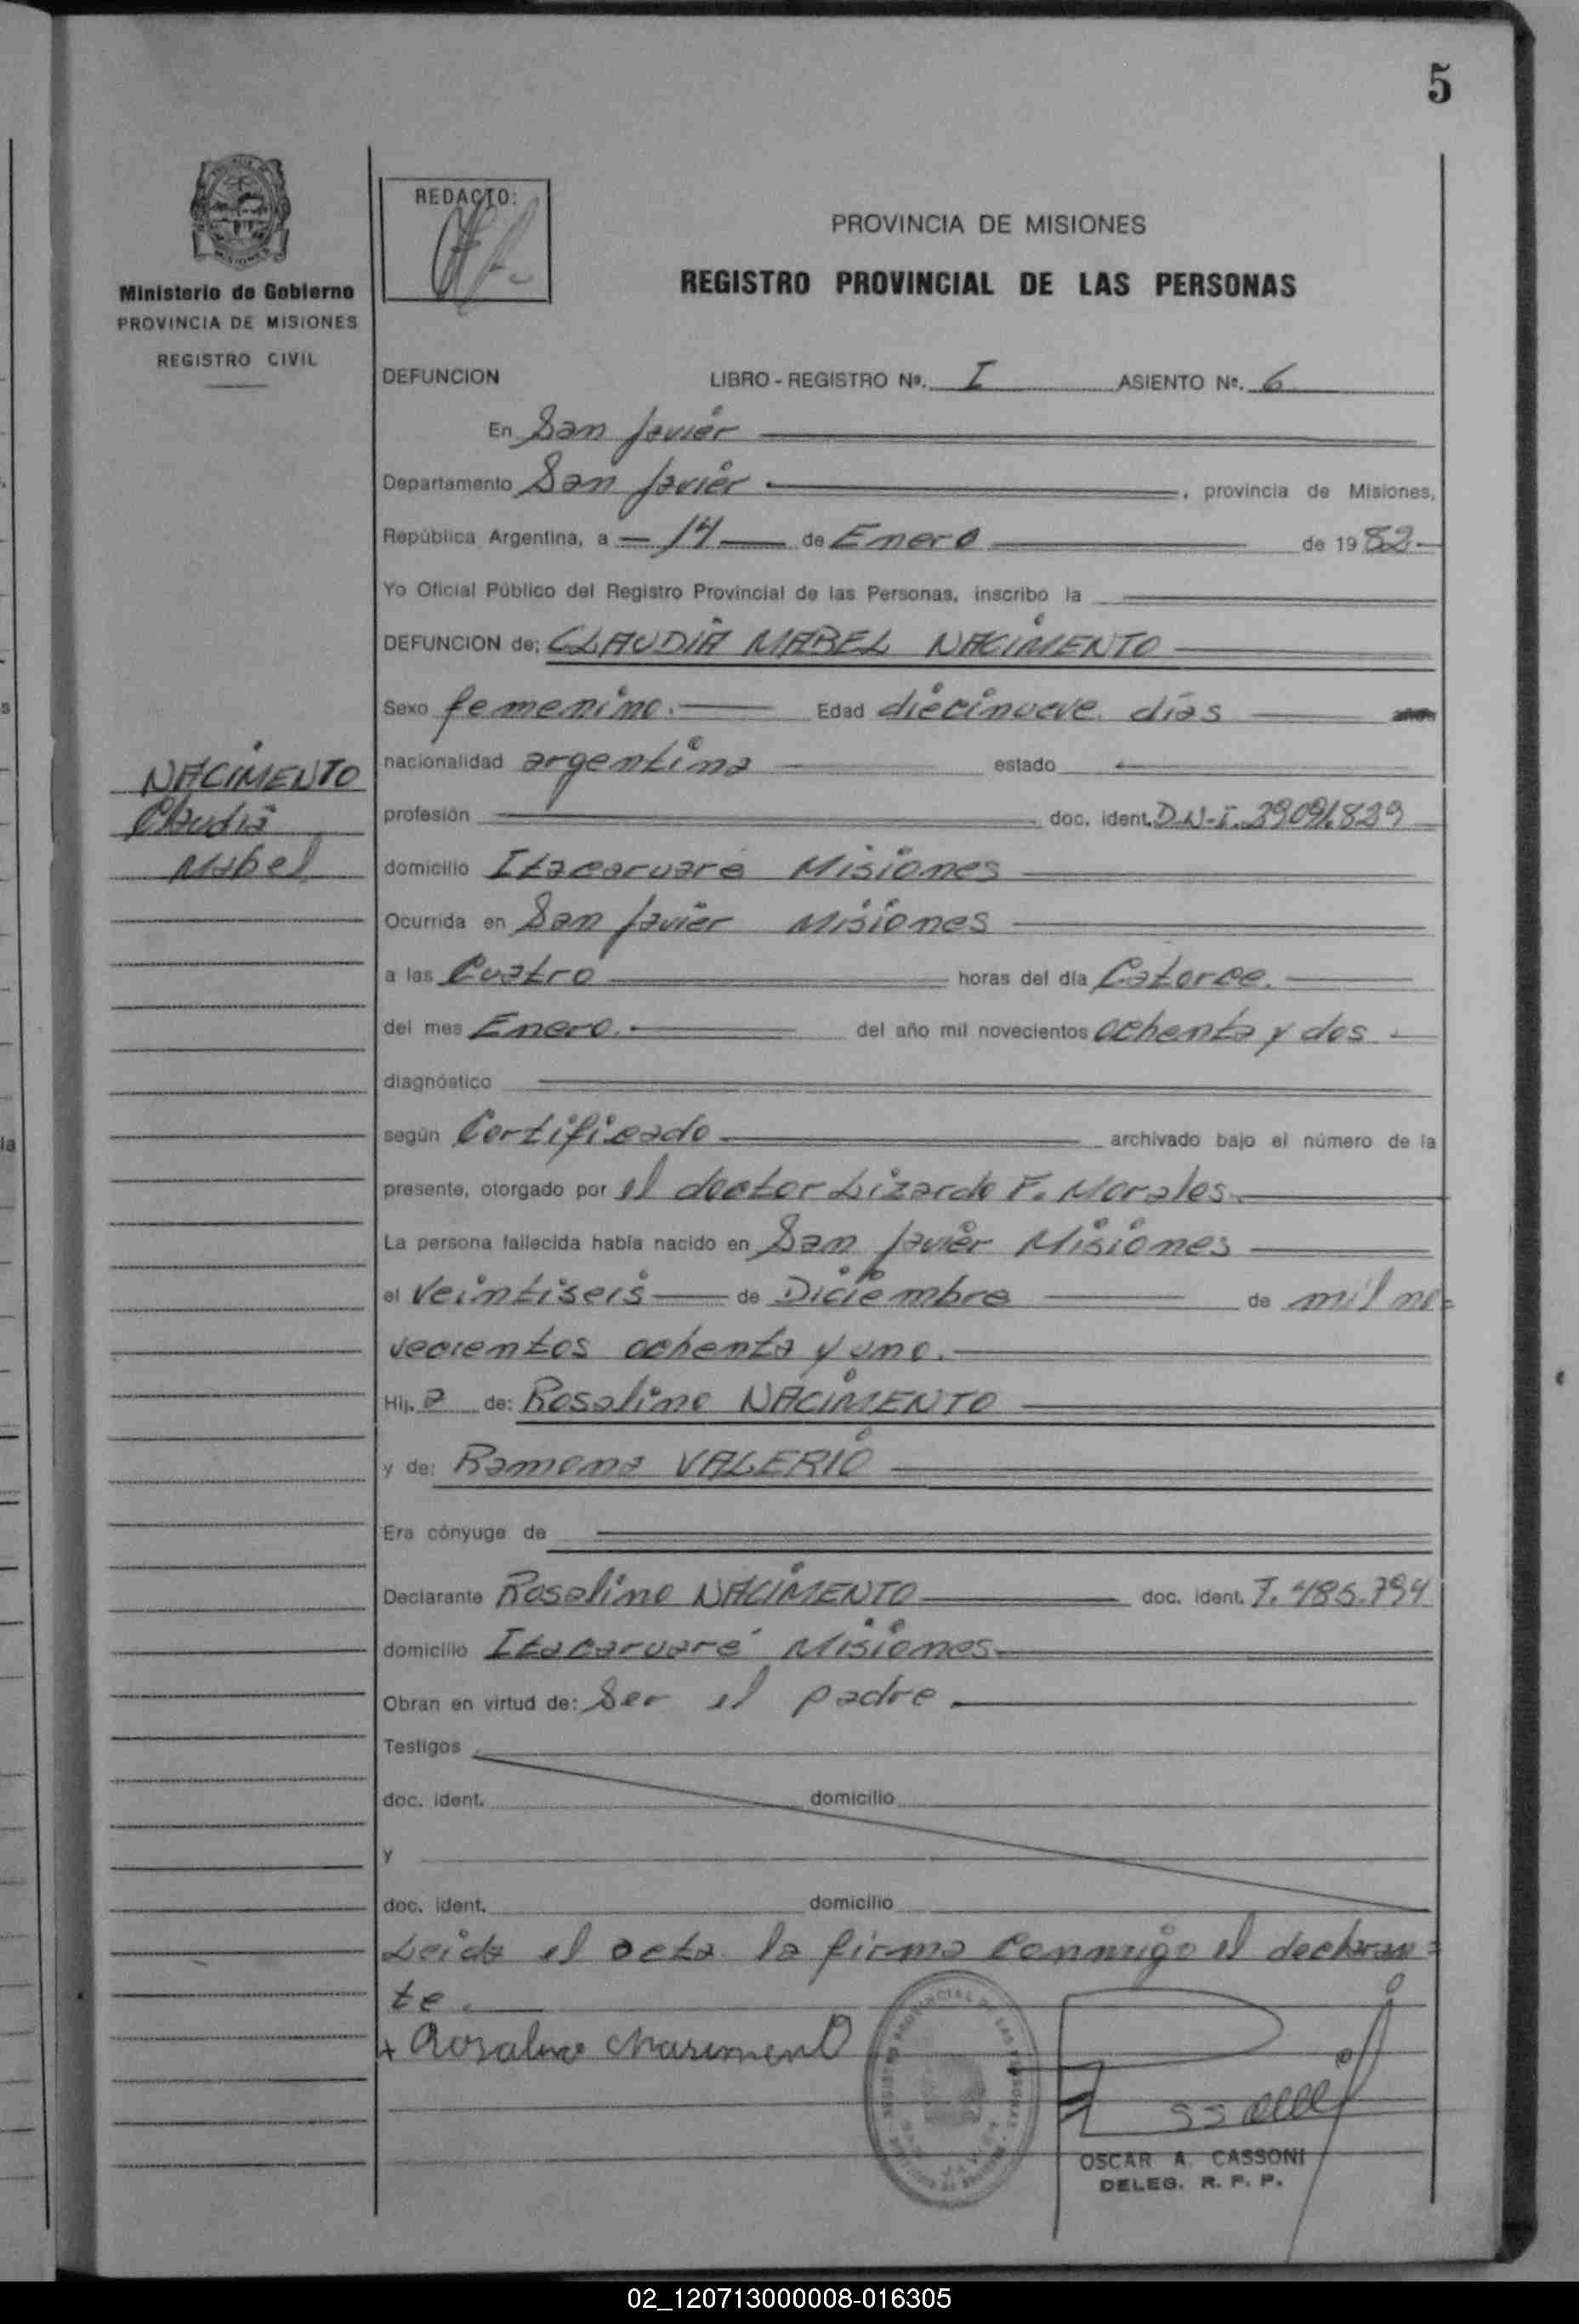 5
REDACTO:
PROVINCIA DE MISIONES
REGISTRO PROVINCIAL DE LAS PERSONAS
Ministerio de Gobierno
PROVINCIA DE MISIONES
REGISTRO CIVIL
DEFUNCION LIBRO - REGISTRO Nº. I ASIENTO Nº. 6
En San Javier
Departamento San Javier , provincia de Misiones,
República Argentina, a 14 de Enero de 1982
Yo Oficial Público del Registro Provincial de las Personas, inscribo la
DEFUNCION de: CLAUDIA MABEL NACIMENTO
Sexo femenino. Edad diecinueve días
nacionalidad argentina estado
NACIMENTO
Claudia
Mabel
profesión doc. ident. D.N.I. 29.091.829
domicilio Itacaruare Misiones
Ocurrida en San Javier Misiones
a las Cuatro horas del día Catorce.
del mes Enero. del año mil novecientos ochenta y dos
diagnóstico
según Certificado archivado bajo el número de la
presente, otorgado por el doctor Lizardo F. Morales.
La persona fallecida había nacido en San Javier Misiones
el Veintiseis de Diciembre de mil no=
vecientos ochenta y uno.
Hij. a de: Rosalino NACIMENTO
y de: Ramona VALERIO
Era cónyuge de
Declarante Rosalino NACIMENTO doc. ident. 7.485.794
domicilio Itacaruaré Misiones
Obran en virtud de: Ser el padre
Testigos
doc. ident. domicilio
y
doc. ident. domicilio
Leida el acta la firma conmigo el declaran=
te.
Rosalino Nasimento
OSCAR A. CASSONI
DELEG. R. P. P.
02_120713000008-016305